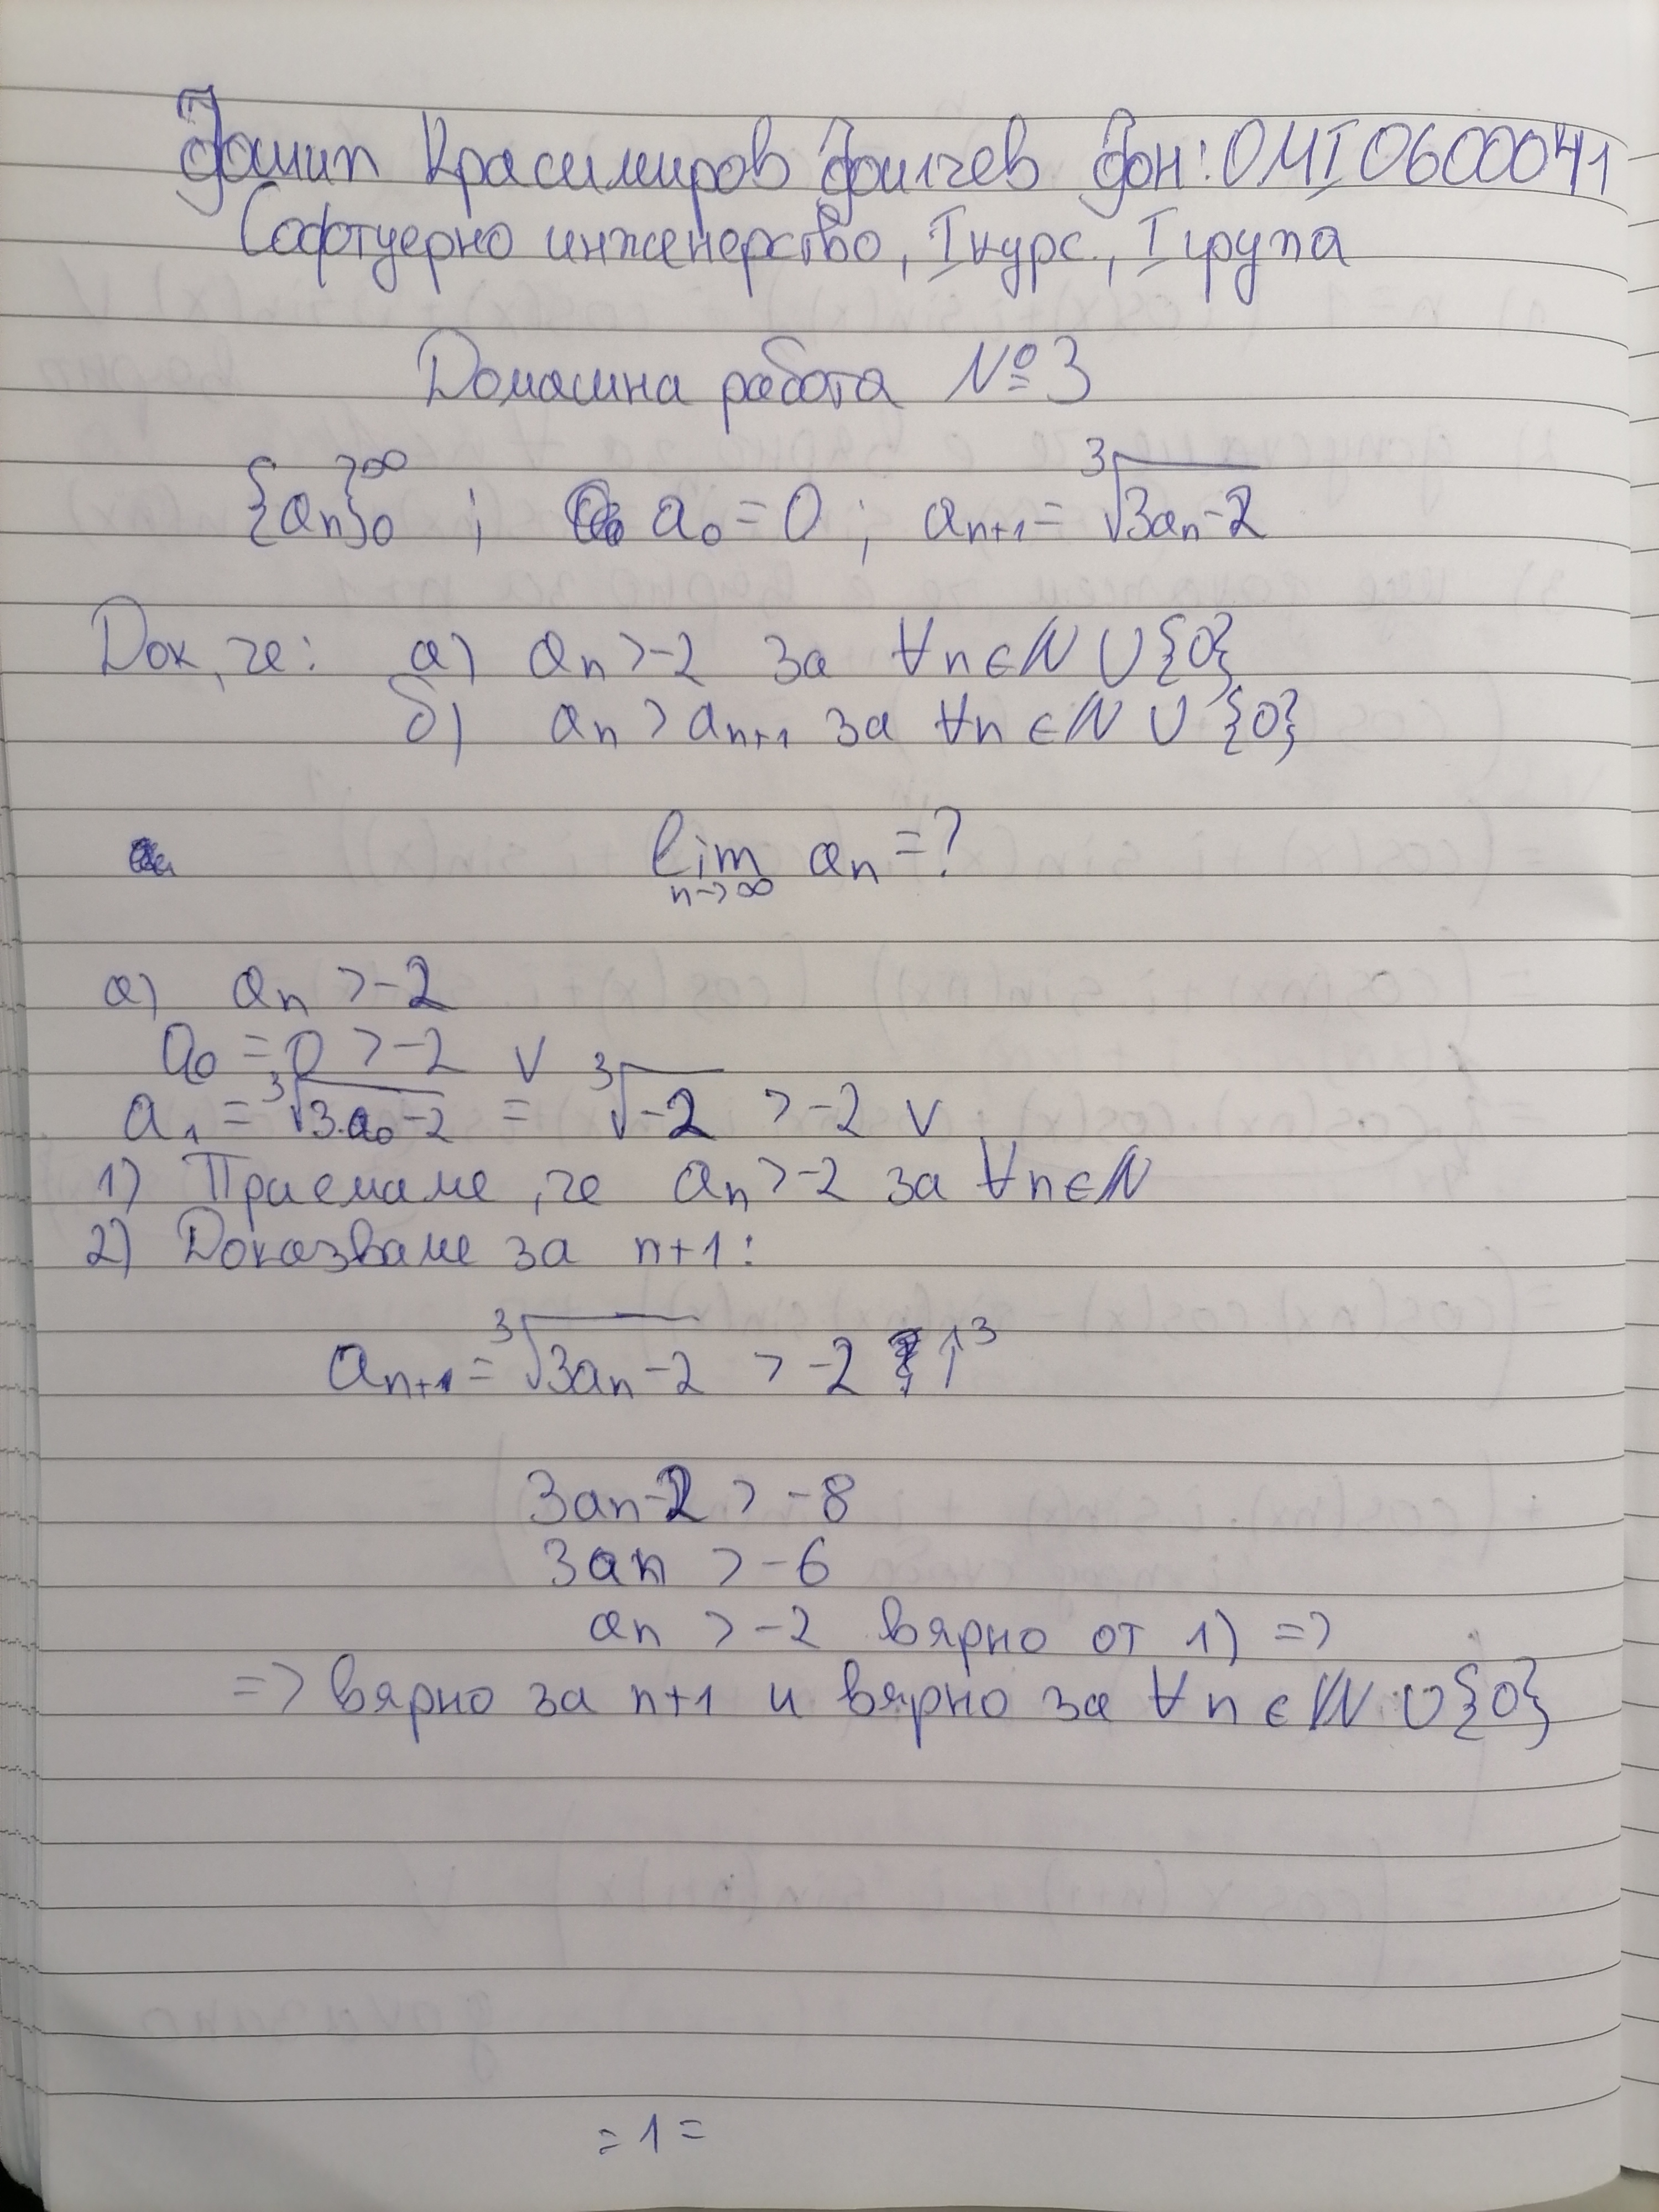 Красимиров фон: 0MI0600041
Софтуерно инженерство, I курс, I група
Домашна работа № 3
{aₙ}₀^∞ ; a₀ = 0 ; aₙ₊₁ = ∛(3aₙ-2)
Док, че: а) aₙ > -2 за ∀n ∈ ℕ ∪ {0}
б) aₙ > aₙ₊₁ за ∀n ∈ ℕ ∪ {0}
lim n→∞ aₙ = ?
а) aₙ > -2
a₀ = 0 > -2 v
a₁ = ∛(3.a₀-2) = ∛-2 > -2 v
1) Приемаме, че aₙ > -2 за ∀n ∈ ℕ
2) Доказваме за n+1:
aₙ₊₁ = ∛(3aₙ-2) > -2 ↑³
3aₙ-2 > -8
3aₙ > -6
aₙ > -2 вярно от 1) =>
=> вярно за n+1 и вярно за ∀n ∈ ℕ ∪ {0}
= 1 =